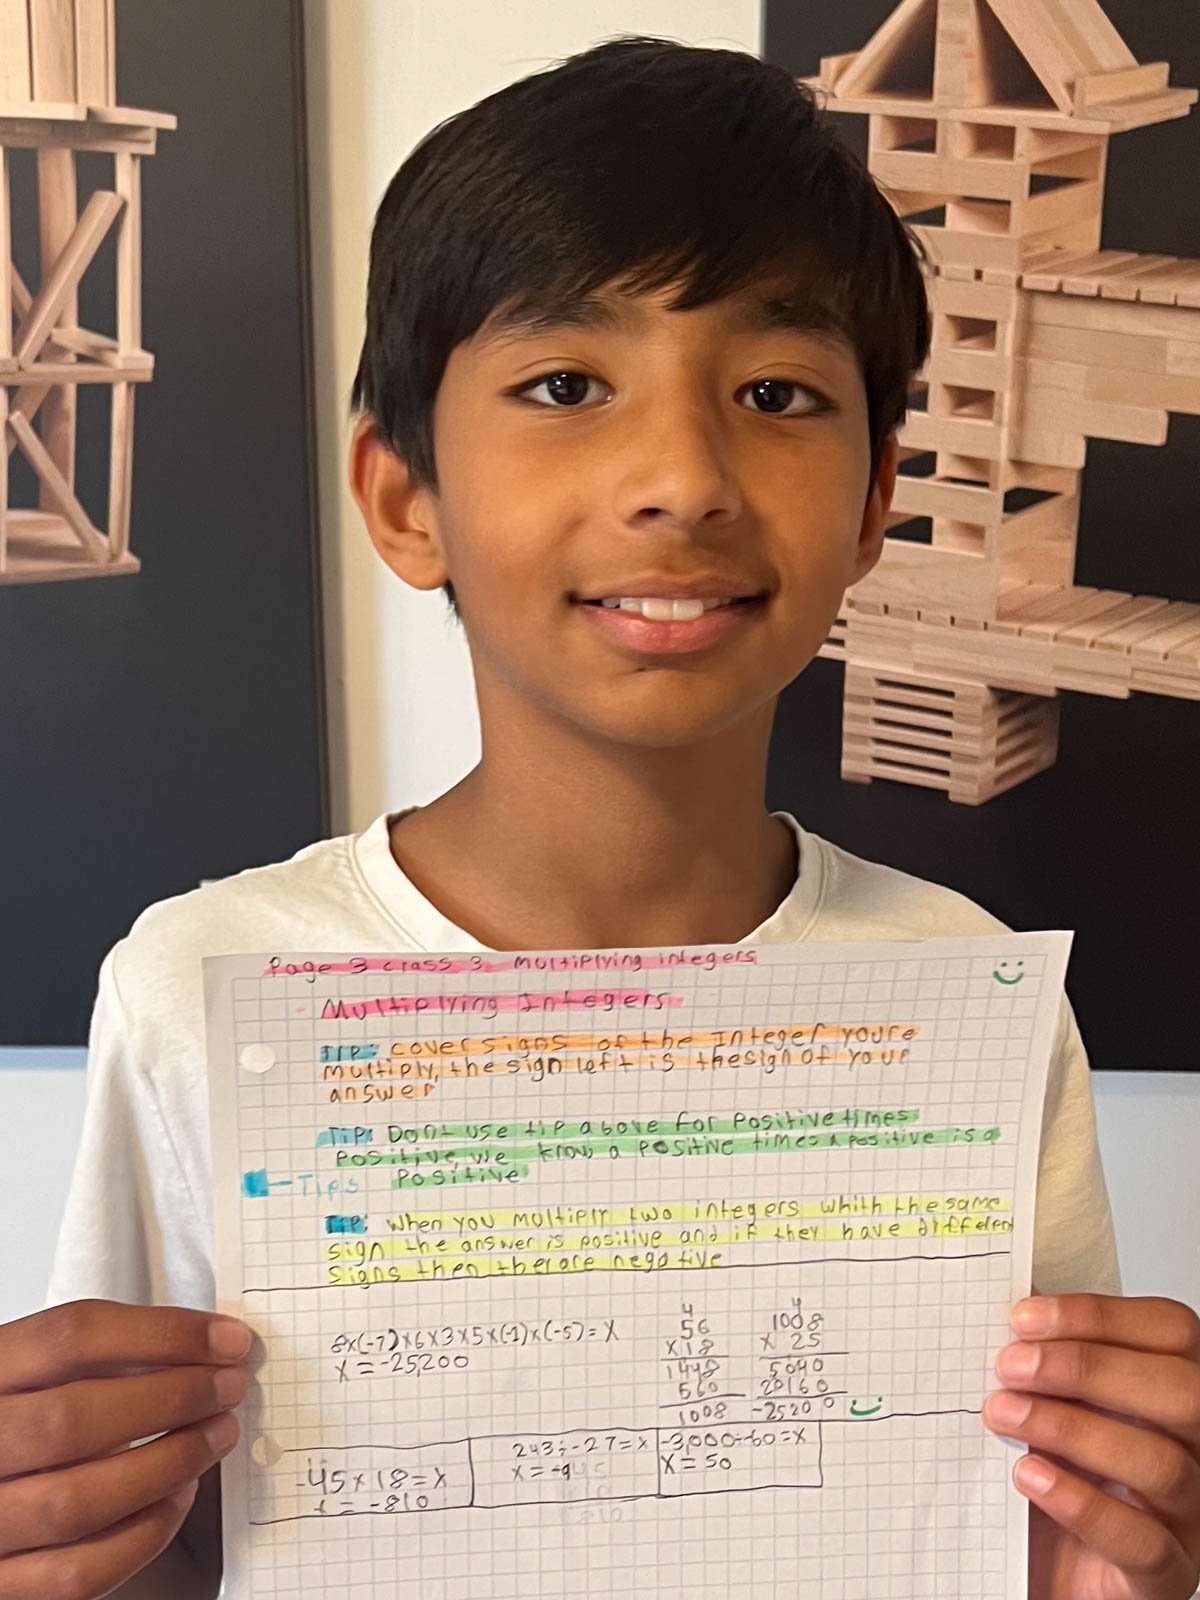 Page 3 class 3 Multiplying integers
Multiplying Integers
TIP: cover signs of the Integer you're
multiply, the sign left is the sign of your
answer
TIP: Dont use tip above for positive times
positive, we know a positive times a positive is a
Tips positive
TIP: When you multiply two integers whith the same
sign the answer is positive and if they have different
signs then therare negative
8x(-7)x6x3x5x(-1)x(-5)=X
X=-25,200
4
56
x18
560
1008
4
1008
x 25
5040
20160
-25200
-45x18=X
x=-810
243÷-27=x
x=-9
-3,000÷-60=x
x=50